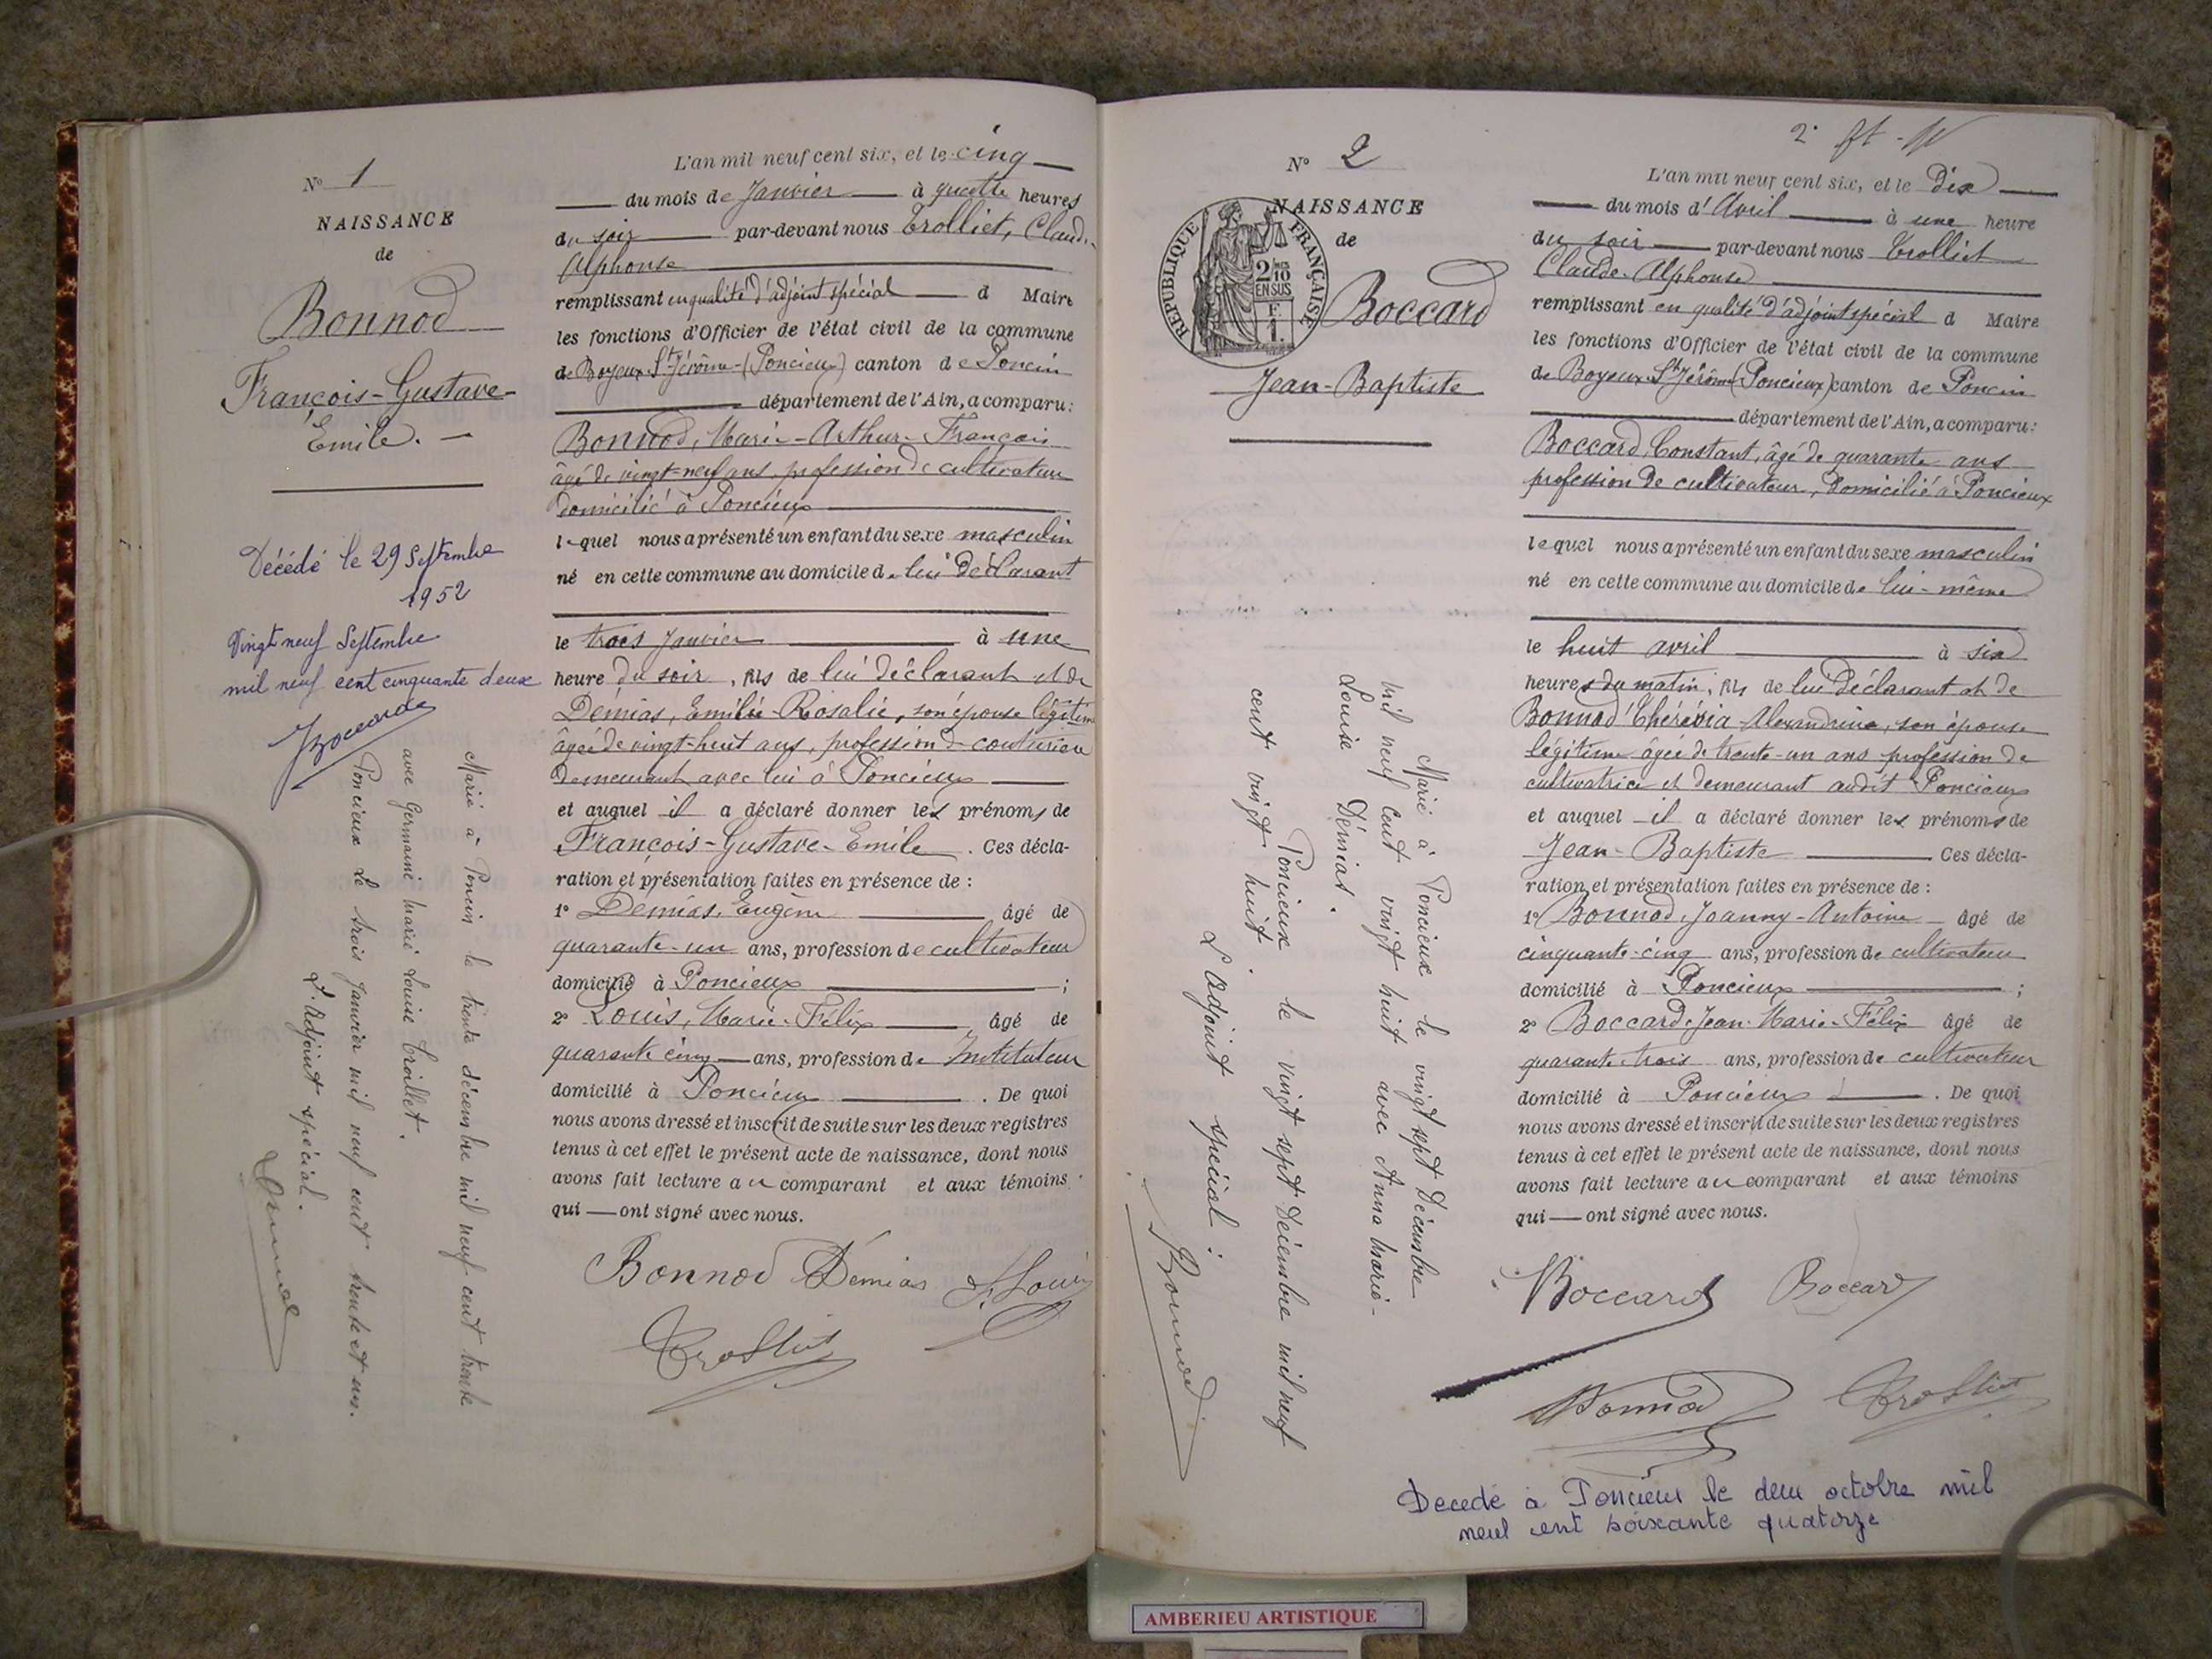 N° 1
NAISSANCE
de
Bonnod
François-Gustave-
Emile. —
Décédé le 29 Septembre
1952
Vingt neuf Septembre
mil neuf cent cinquante deux
Marié à Poncin le trente décembre mil neuf cent trente
avec Germaine Marie Louise Troillet.
Poncieux le trois janvier mil neuf cent trente et un.
L'adjoint spécial.
L'an mil neuf cent six, et le cinq
du mois de Janvier à quatre heures
du soir par-devant nous Trolliet, Claude
Alphonse
remplissant en qualité d'adjoint spécial d Maire
les fonctions d'Officier de l'état civil de la commune
de Boyeux-St Jérôme-(Poncieux) canton de Poncin
département de l'Ain, a comparu:
Bonnod, Marie-Arthur-François
âgé de vingt-neuf ans, profession de cultivateur
domicilié à Poncieux
lequel nous a présenté un enfant du sexe masculin
né en cette commune au domicile de lui déclarant
le trois Janvier à une
heure du soir, fils de lui déclarant et de
Démias, Emilie-Rosalie, son épouse légitime
âgée de vingt-huit ans, profession de couturière
demeurant avec lui à Poncieux
et auquel il a déclaré donner les prénoms de
François-Gustave-Emile. Ces décla-
ration et présentation faites en présence de :
1° Démias, Eugène âgé de
quarante-un ans, profession de cultivateur
domicilié à Poncieux ;
2° Louis, Marie-Félix âgé de
quarante cinq ans, profession de Instituteur
domicilié à Poncieux. De quoi
nous avons dressé et inscrit de suite sur les deux registres
tenus à cet effet le présent acte de naissance, dont nous
avons fait lecture au comparant et aux témoins
qui — ont signé avec nous.
Bonnod Démias F. Louis
Trolliet
2° ft -
N° 2
NAISSANCE
de
REPUBLIQUE FRANÇAISE
2/10
EN SUS
F.
1.
Boccard
Jean-Baptiste
Marié à Poncieux le vingt sept Décembre
mil neuf cent vingt huit avec Anna Marie-
Louise Démias.
Poncieux le vingt sept Décembre mil neuf
cent vingt huit
L'adjoint spécial:
Bonnod
L'an mil neuf cent six, et le Dix
du mois d'Avril à une heure
du soir par-devant nous Trolliet
Claude-Alphonse
remplissant en qualité d'adjoint spécial d Maire
les fonctions d'Officier de l'état civil de la commune
de Boyeux-St Jérôme (Poncieux) canton de Poncin
département de l'Ain, a comparu:
Boccard, Constant, âgé de quarante ans
profession de cultivateur, domicilié à Poncieux
lequel nous a présenté un enfant du sexe masculin
né en cette commune au domicile de lui-même
le huit avril à six
heures du matin, fils de lui déclarant et de
Bonnod Alexandrine, son épouse
légitime âgée de trente-un ans profession de
cultivatrice et demeurant audit Poncieux
et auquel il a déclaré donner les prénoms de
Jean-Baptiste Ces décla-
ration et présentation faites en présence de :
1° Bonnod, Joanny-Antoine — âgé de
cinquante-cinq ans, profession de cultivateur
domicilié à Poncieux ;
2° Boccard, Jean-Marie-Félix âgé de
quarante-trois ans, profession de cultivateur
domicilié à Poncieux. De quoi
nous avons dressé et inscrit de suite sur les deux registres
tenus à cet effet le présent acte de naissance, dont nous
avons fait lecture au comparant et aux témoins
qui — ont signé avec nous.
Boccard Boccard
Bonnod Trolliet
Decedé à Poncieux le deux octobre mil
neuf cent soixante quatorze
AMBERIEU ARTISTIQUE